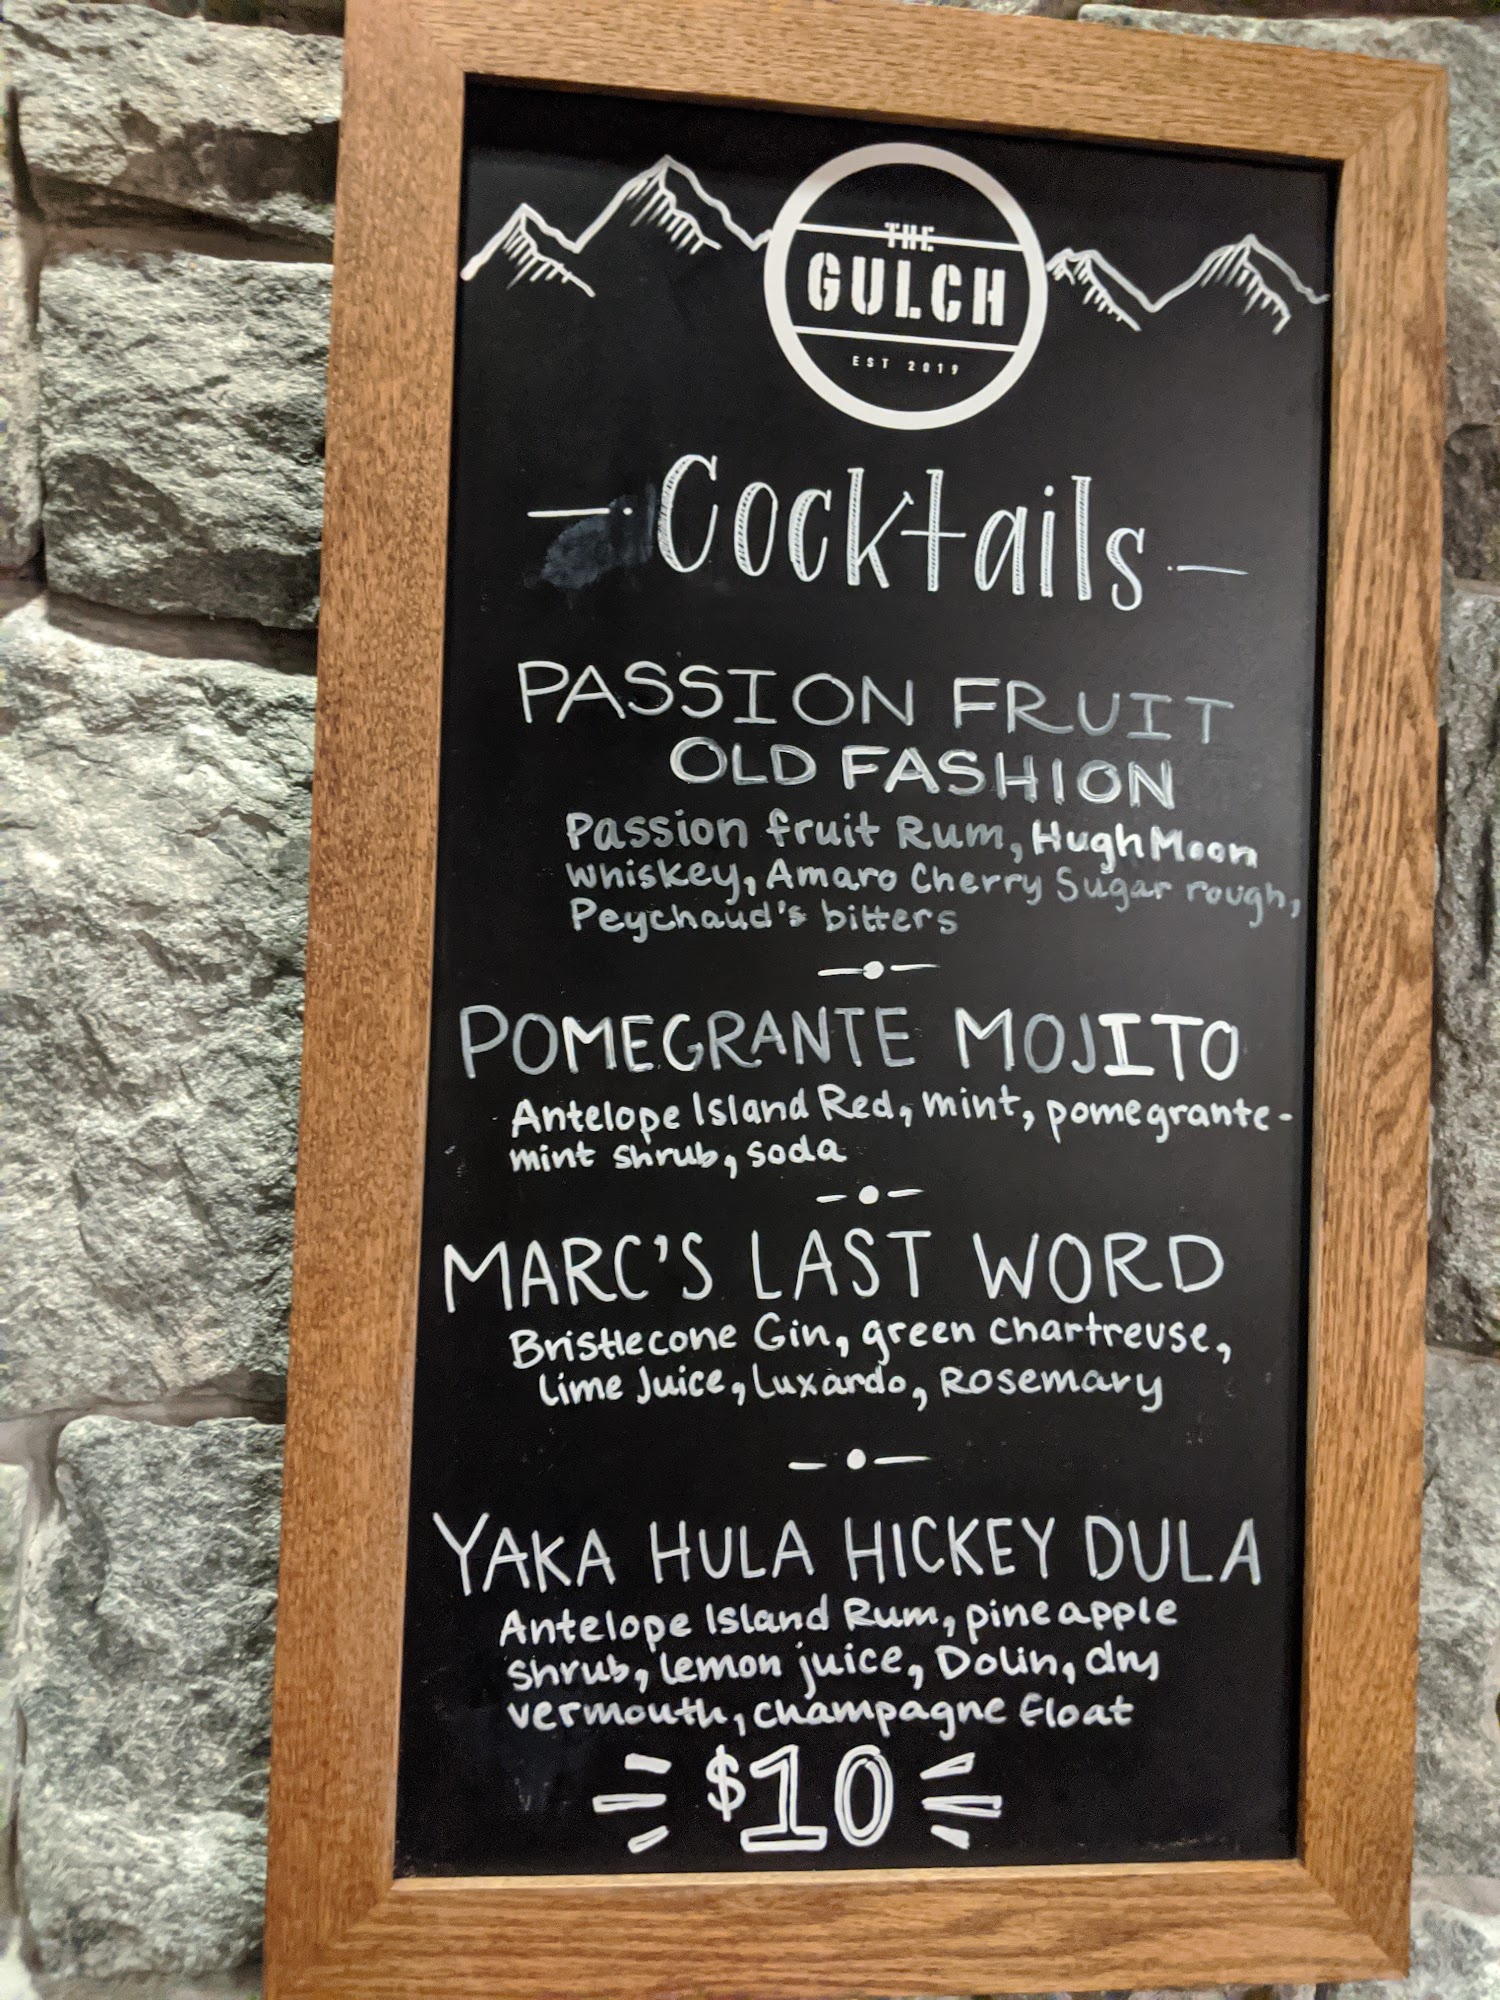 THE
GULCH
EST 2019
Cocktails
PASSION FRUIT
OLD FASHION
Passion fruit Rum, Hugh Moon
Whiskey, Amaro Cherry Sugar rough,
Peychaud's bitters
POMEGRANTE MOJITO
Antelope Island Red, mint, pomegrante-
mint shrub, soda
MARC'S LAST WORD
Bristlecone Gin, green Chartreuse,
lime Juice, Luxardo, Rosemary
YAKA HULA HICKEY DULA
Antelope Island Rum, pineapple
shrub, lemon juice, Dolin, dry
vermouth, champagne float
$10